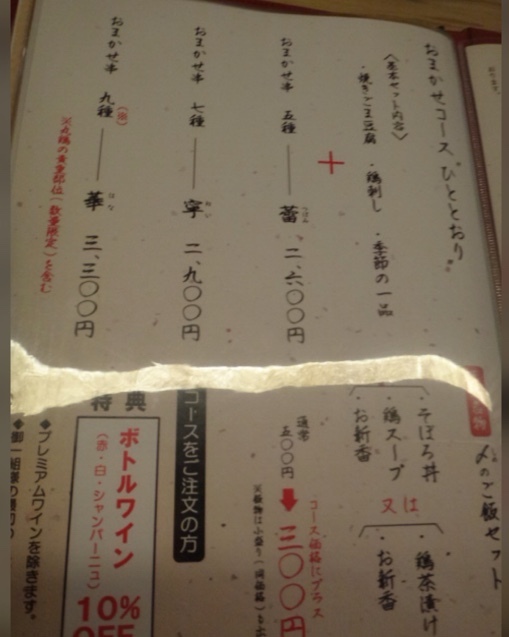 おまかせコース ひととおり
〈基本セット内容〉
・焼きごま豆腐 ・鶏刺し ・季節の一品
＋
おまかせ串 五種 ── 蕾 二、六〇〇円
おまかせ串 七種 ── 寧 二、九〇〇円
おまかせ串 九種 ── 華 三、三〇〇円
はな
※丸鶏の貴重部位(数量限定)を含む
〆のご飯セット
そぼろ丼
・鶏スープ
・お新香
又は
・鶏茶漬け
・お新香
通常
五〇〇円
コース価格にプラス
三〇〇円
コースをご注文の方
特典
ボトルワイン
(赤・白・シャンパーニュ)
10%
OFF
◆プレミアムワインを除きます。